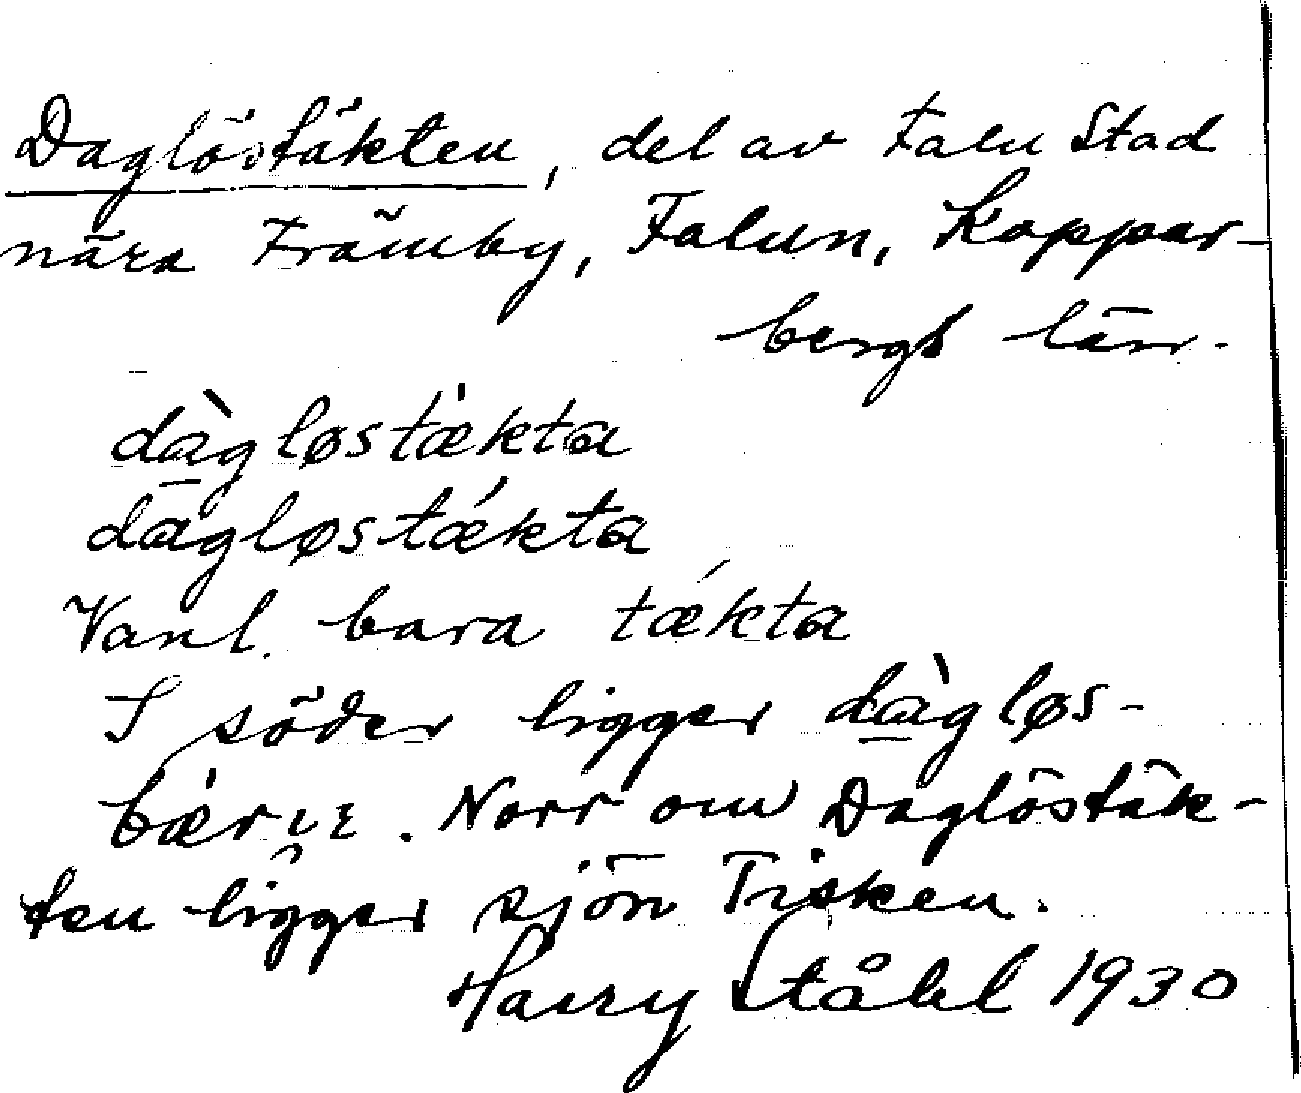 Daglöstäkten, del av Falu Stad
nära Främby, Falun, Koppar-
bergs län.
dàgløstækta
dagløstǽkta
Vanl. bara tǽkta
I söder ligger dàgløs-
bærje. Norr om Daglöstäk-
ten ligger sjön Tisken.
Harry Ståhl 1930